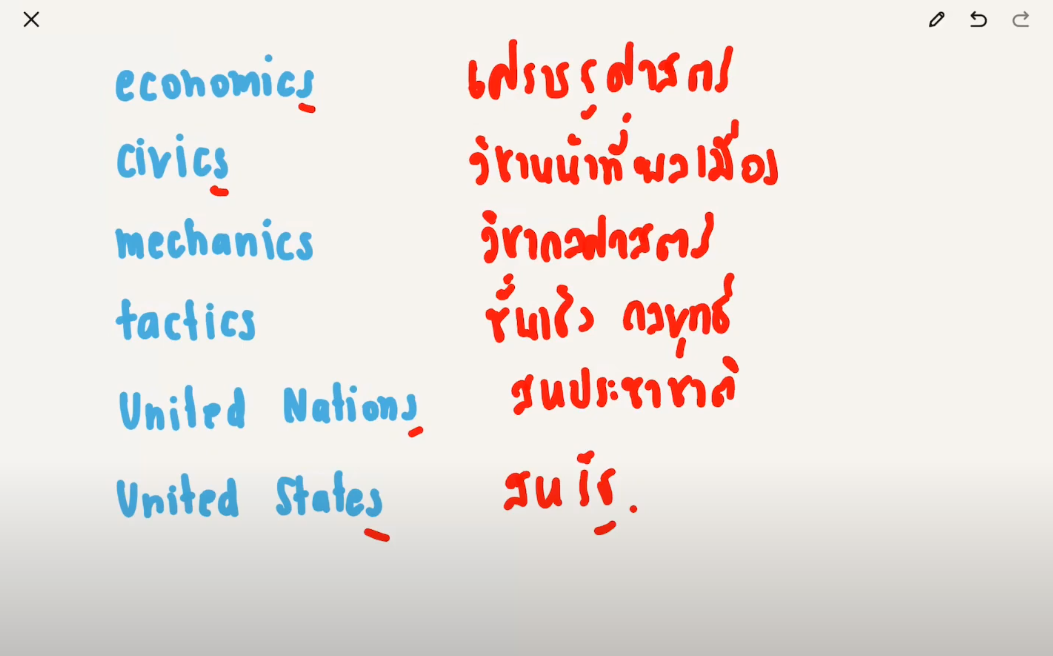 economics เศรษฐศาสตร์
civics วิชาหน้าที่พลเมือง
mechanics วิชากลศาสตร์
tactics ชั้นเชิง กลยุทธ์
United Nations สหประชาชาติ
United States สหรัฐ.